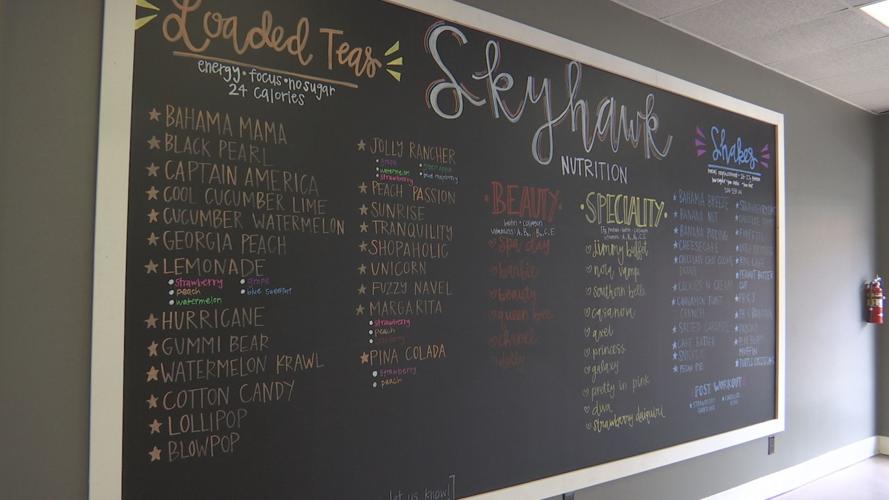 Loaded Teas
energy • focus • no sugar
24 calories
BAHAMA MAMA
BLACK PEARL
CAPTAIN AMERICA
COOL CUCUMBER LIME
CUCUMBER WATERMELON
GEORGIA PEACH
LEMONADE
strawberry grape
peach blue sweetart
watermelon
HURRICANE
GUMMI BEAR
WATERMELON KRAWL
COTTON CANDY
LOLLIPOP
BLOWPOP
JOLLY RANCHER
grape green apple
watermelon blue raspberry
strawberry
PEACH PASSION
SUNRISE
TRANQUILITY
SHOPAHOLIC
UNICORN
FUZZY NAVEL
MARGARITA
strawberry
peach
PINA COLADA
strawberry
peach
let us know!
Skyhawk
NUTRITION
• BEAUTY •
biotin • collagen
spa day
barbie
beauty
queen bee
chanel
dolly
• SPECIALITY •
jimmy buffet
nova vamp
southern belle
casanova
axel
princess
galaxy
pretty in pink
diva
strawberry daiquiri
Shakes
BAHAMA BREEZE
BANANA NUT
BANANA PUDDING
CHEESECAKE
COOKIES N CREAM
CINNAMON TOAST
CRUNCH
SALTED CARAMEL
CAKE BATTER
PECAN PIE
PEANUT BUTTER
CUP
MUFFIN
TURTLE CHEESECAKE
POST WORKOUT